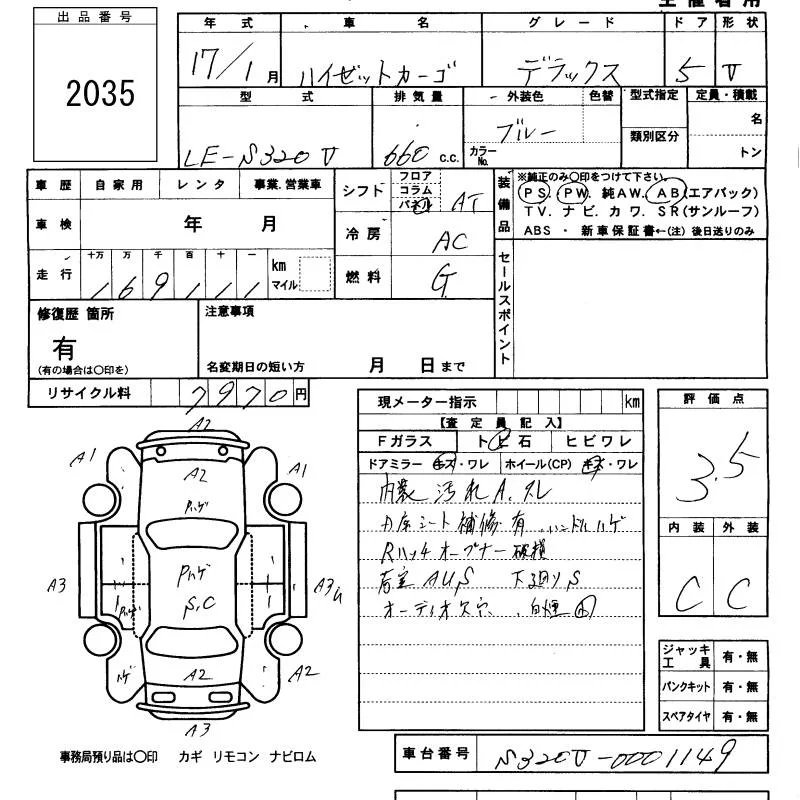 出品番号
2035
年式 車名 グレード ドア 形状
17/1月 ハイゼットカーゴ デラックス 5 V
型式 排気量 外装色 色替 型式指定 定員・積載
LE-S320V 660 c.c. ブルー カラーNo. 類別区分 名
トン
車歴 自家用 レンタ 事業.営業車
車検 年 月
走行 十万 万 千 百 十 一 km マイル
169111
シフト フロア コラム パネル AT
冷房 AC
燃料 G
装備品
※純正のみ〇印をつけて下さい。
PS. PW. 純AW. AB(エアバック)
TV. ナビ. カワ. SR(サンルーフ)
ABS ・ 新車保証書←(注) 後日送りのみ
セールスポイント
修復歴 箇所
有
(有の場合は〇印を)
注意事項
名変期日の短い方 月 日まで
リサイクル料 7970円
現メーター指示 km
【査定員記入】
Fガラス トビ石 ヒビワレ
ドアミラー キズ・ワレ ホイール(CP) キズ・ワレ
内装 汚れ A. スレ
シート 補修 有 ハンドルハゲ
Rハッチ オープナー 破損
AUS 下廻りS
オーディオ欠穴、白煙
評価点
3.5
内装 外装
C C
ジャッキ
工具 有・無
パンクキット 有・無
スペアタイヤ 有・無
A2
A1 A2 A1
ハゲ
A3 Pハゲ A3
S,C
ハゲ A2 A2
A3
事務局預り品は〇印 カギ リモコン ナビロム
車台番号 S320V-0001149